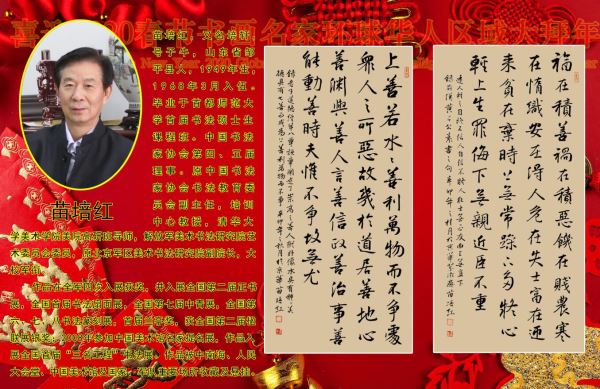 喜迎2020春节书画名家环球华人区域大拜年
苗培红，又名培轩，
号子牛，山东省邹
平县人，1949年生，
1968年3月入伍，
毕业于首都师范大
学首届书法硕士生
课程班。中国书法
家协会第四、五届
理事，原中国书法
家协会书法教育委
员会副主任，培训
中心教授，清华大
学美术学院美培高研班导师，解放军美术书法研究院艺
术委员会委员，原北京军区美术书法研究院副院长，大
校军衔。
作品在全军四次入展获奖，并入展全国第二届正书
展，全国首届书法扇面展，全国第七届中青展，全国第
六、七、八书法篆刻展，首届兰亭奖，获全国第二届楹
联展银奖，2008年参加中国美术馆名家提名展。作品入
展全国首届“三名工程”书法展。作品被中南海、人民
大会堂、中国美术馆及国家、军队重要场所收藏及悬挂。
苗培红
福在積善禍在積惡饑在賤農寒
在惰織安在得人危在失士富在迎
來貧在棄時上無常躁下多疑心
輕上生罪侮下無親近臣不重
上善若水水善利萬物而不爭處
衆人之所惡故幾於道居善地心
善淵與善人言善信政善治事善
能動善時夫惟不爭故無尤